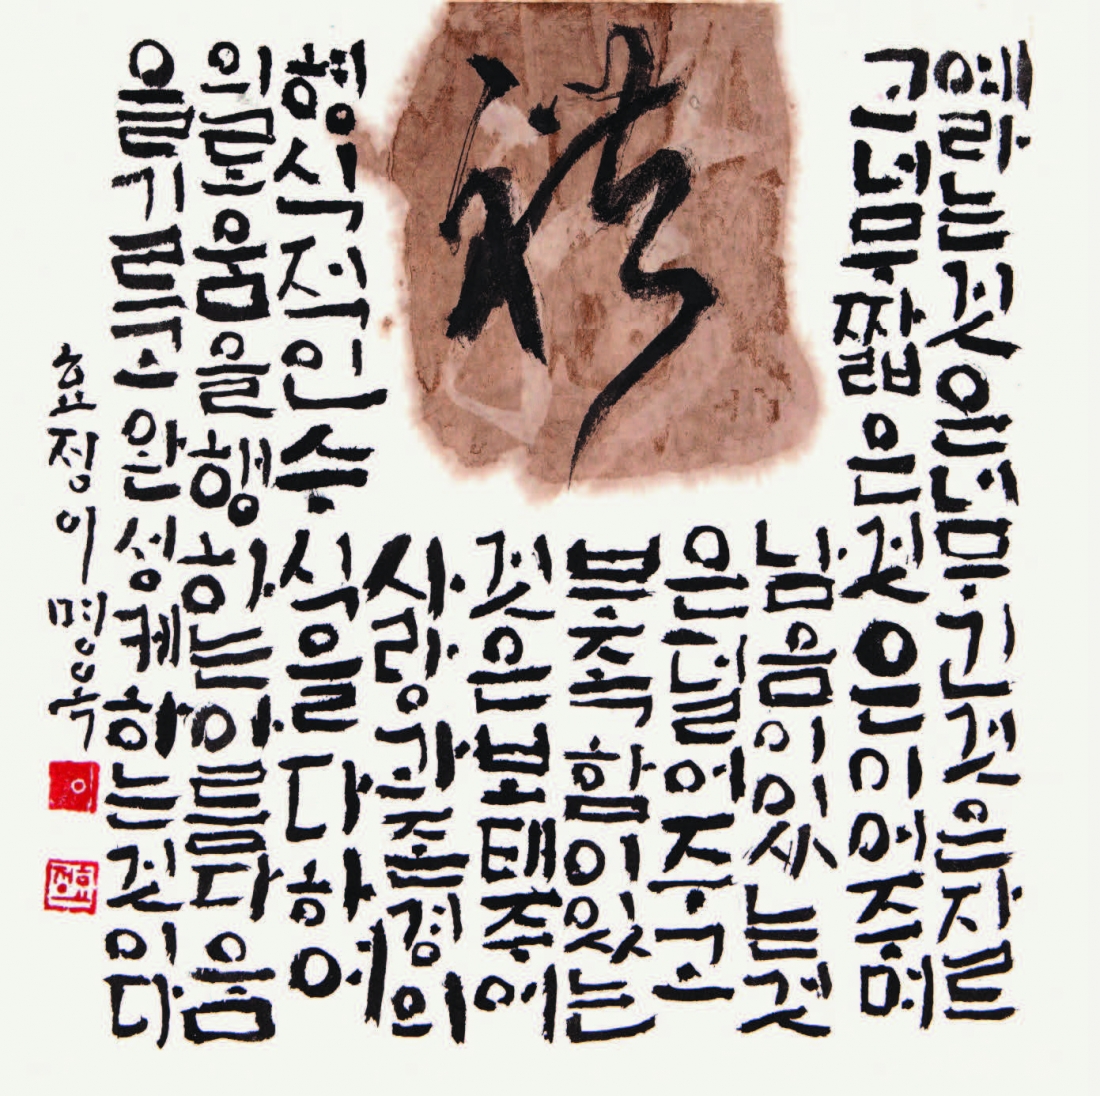 禮
예라는것은너무긴것은자르
고너무짧은것은이어주며
남음이있는것
은덜어주고
부족함이있는
것은보태주어
사랑과존경의
형식적인수식을다하여
의로움을행하는아름다움
을기르고완성케하는것이다
효정이명옥
효정